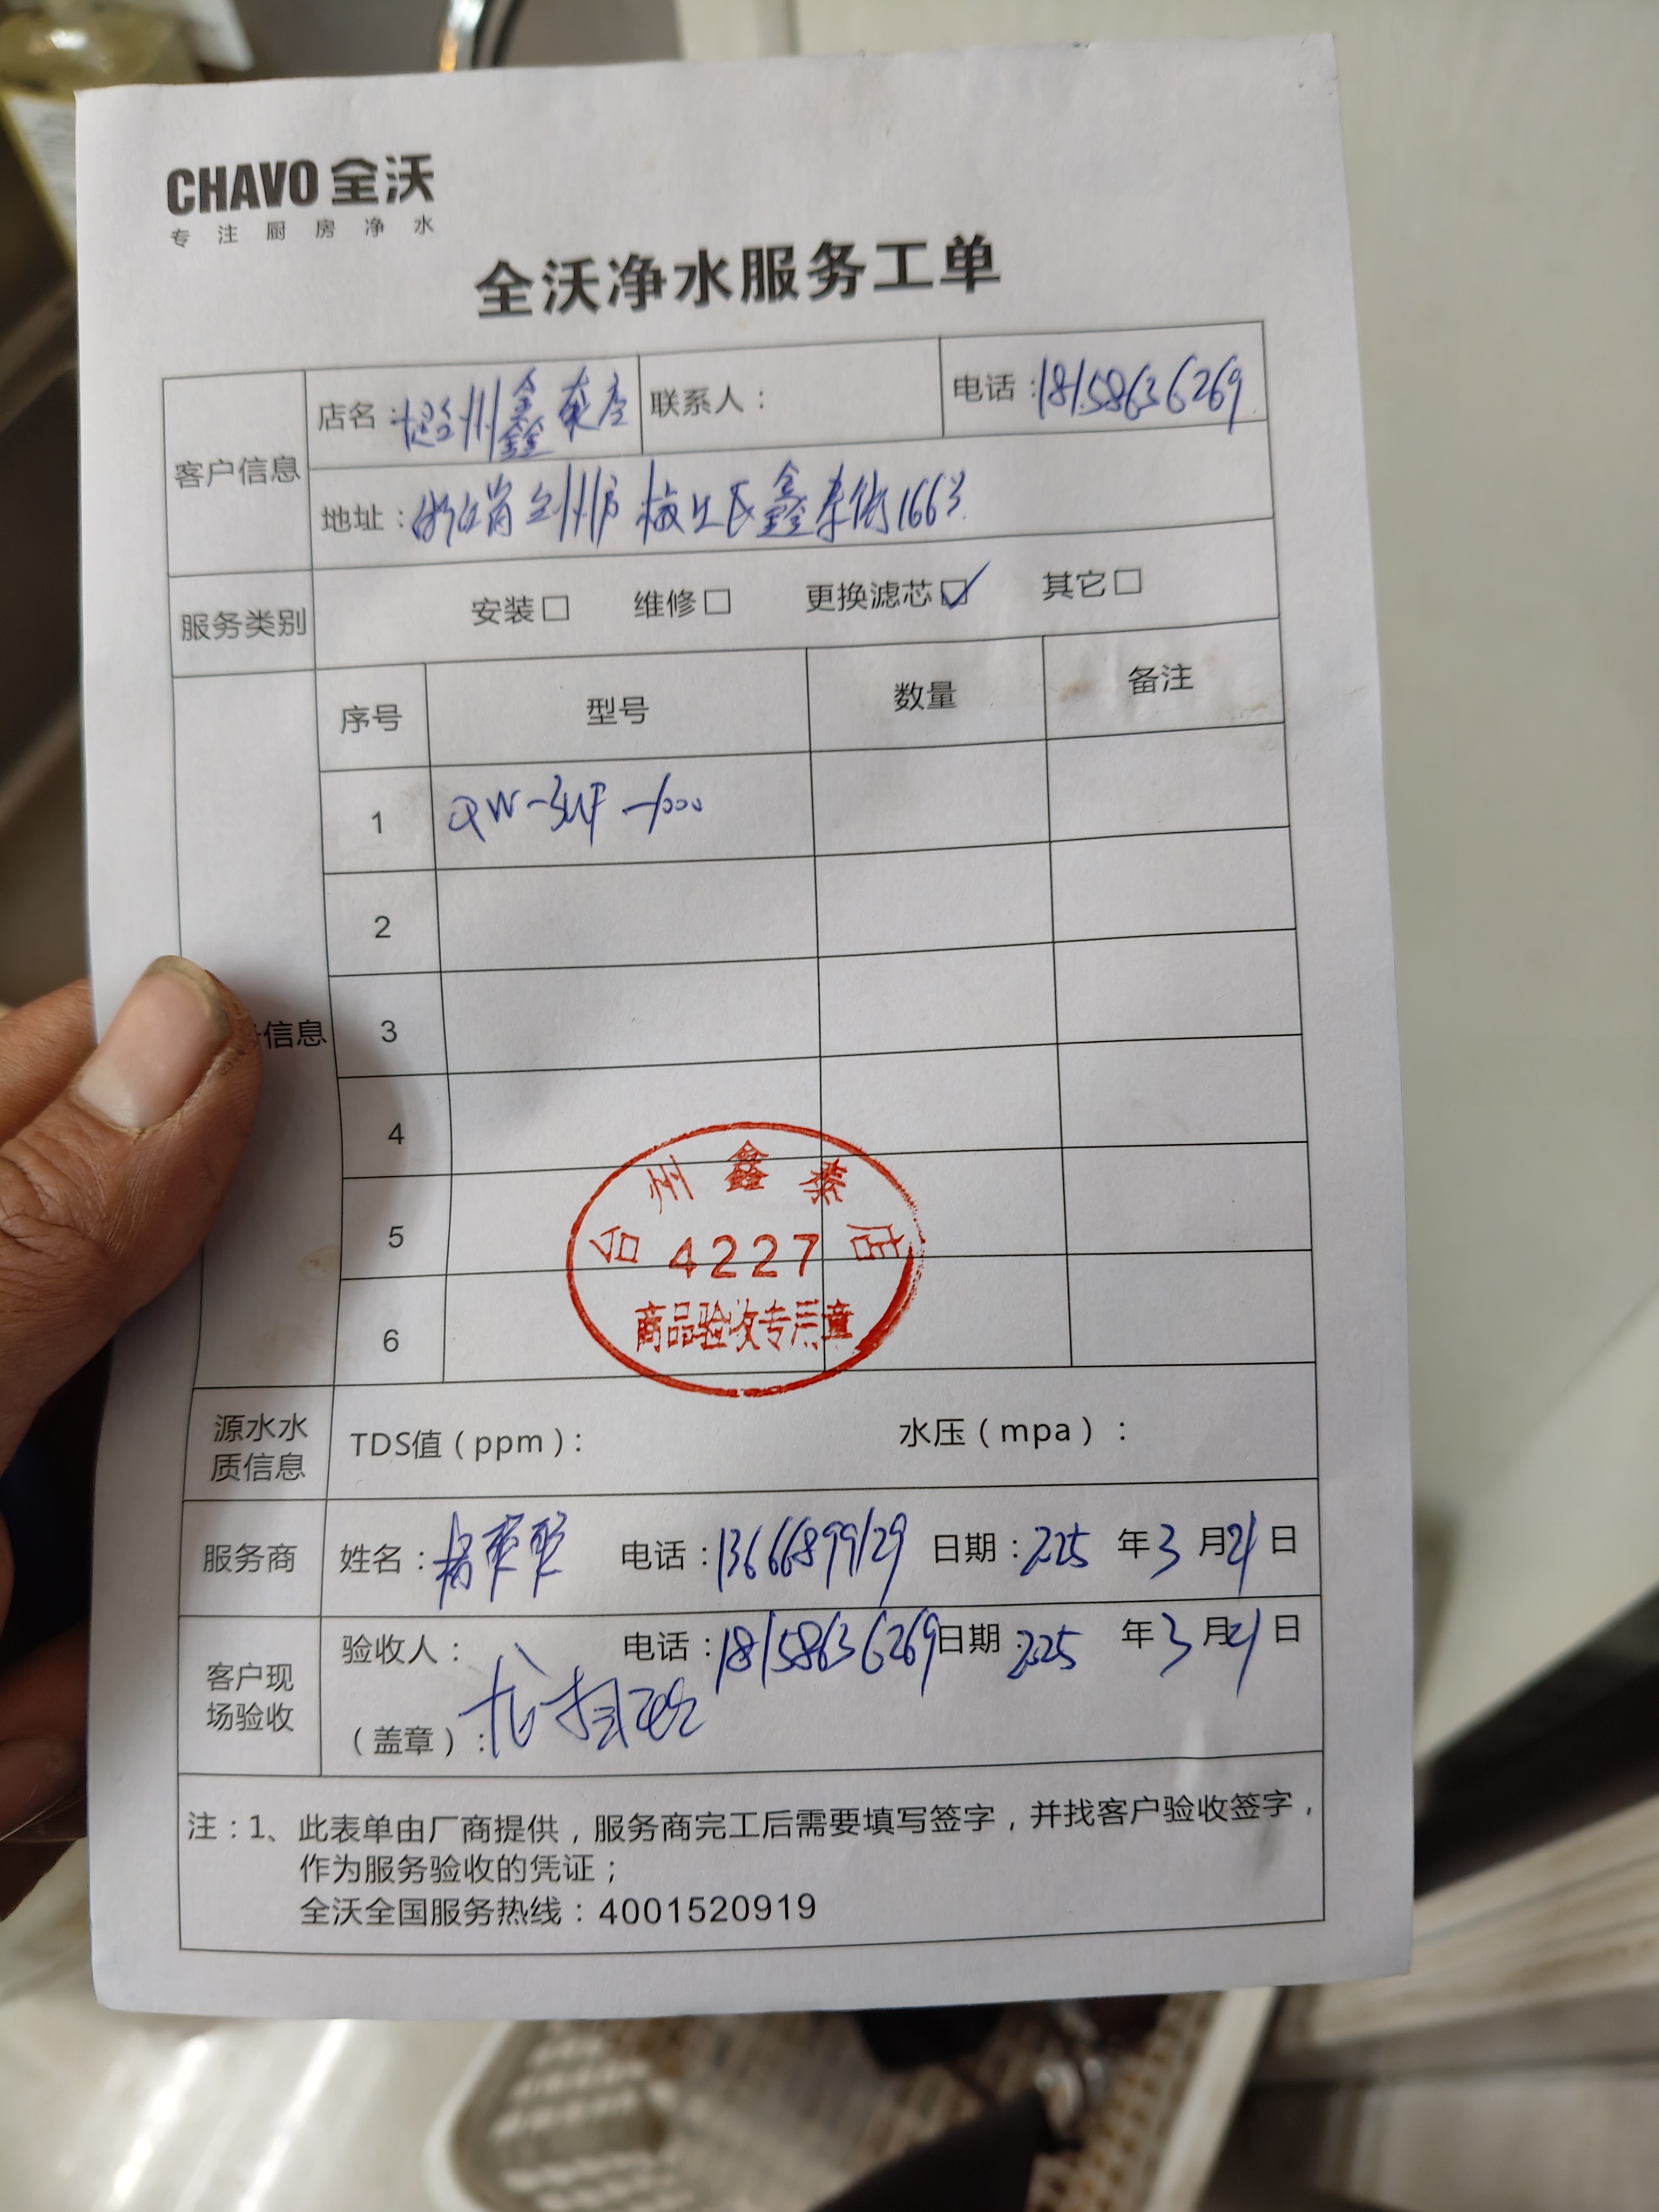 CHAVO 全沃
专注厨房净水
全沃净水服务工单
客户信息
店名：州鑫店
联系人：
电话：18158636269
地址：浙江省台州市 鑫泰街166号
服务类别
安装□ 维修□ 更换滤芯☑ 其它□
序号 型号 数量 备注
1 QW-3UF-1000
2
信息
3
4
5
6
台州鑫泰店
4227
商品验收专用章
源水水质信息
TDS值（ppm）： 水压（mpa）：
服务商
姓名：杨 电话：13666899129 日期：2025 年 3 月 21 日
客户现场验收
验收人： 电话：18158636269 日期：2025 年 3 月 21 日
（盖章）：
注：1、此表单由厂商提供，服务商完工后需要填写签字，并找客户验收签字，
作为服务验收的凭证；
全沃全国服务热线：4001520919